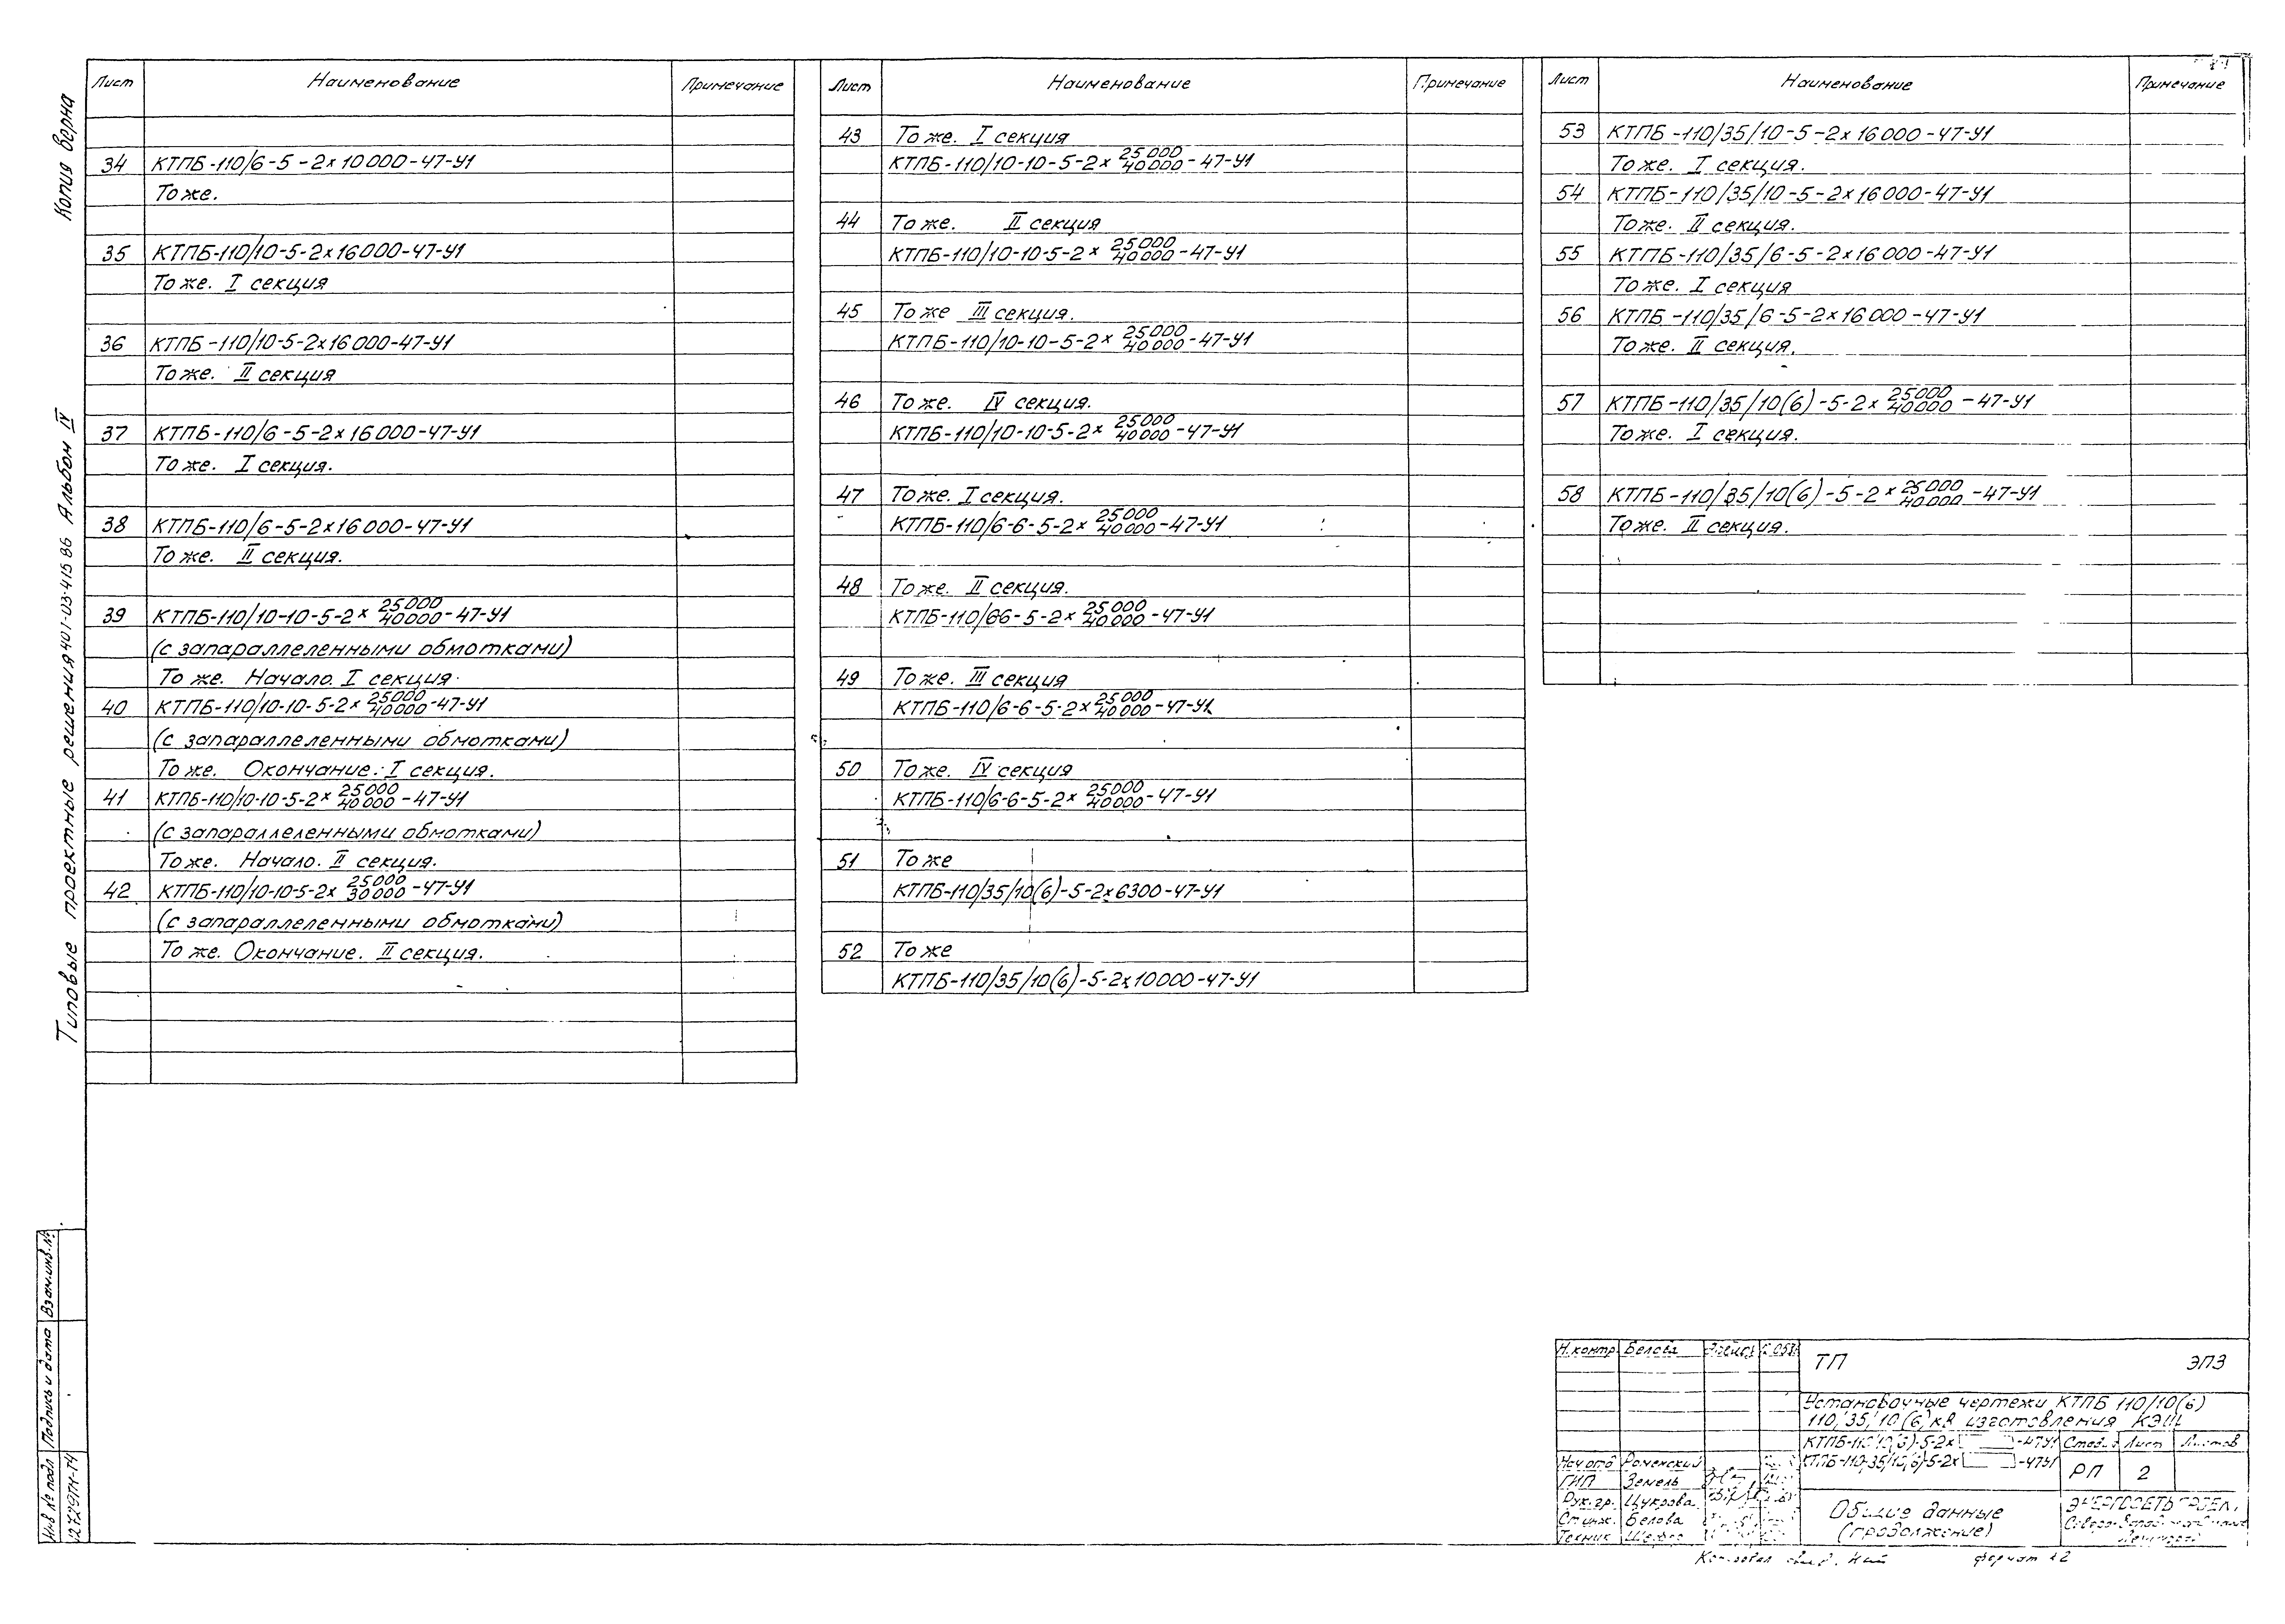 Копия верна
Типовые проектные решения 401-03-415 86 Альбом IV
Лист Наименование Примечание
34 КТПБ-110/6-5-2х10000-47-У1
То же.
35 КТПБ-110/10-5-2х16000-47-У1
То же. I секция
36 КТПБ-110/10-5-2х16000-47-У1
То же. II секция
37 КТПБ-110/6-5-2х16000-47-У1
То же. I секция.
38 КТПБ-110/6-5-2х16000-47-У1
То же. II секция.
39 КТПБ-110/10-10-5-2х 25000/40000-47-У1
(с запараллеленными обмотками)
То же. Начало. I секция.
40 КТПБ-110/10-10-5-2х 25000/40000-47-У1
(с запараллеленными обмотками)
То же. Окончание. I секция.
41 КТПБ-110/10-10-5-2х 25000/40000-47-У1
(с запараллеленными обмотками)
То же. Начало. II секция.
42 КТПБ-110/10-10-5-2х 25000/30000-47-У1
(с запараллеленными обмотками)
То же. Окончание. II секция.
Лист Наименование Примечание
43 То же. I секция
КТПБ-110/10-10-5-2х 25000/40000-47-У1
44 То же. II секция
КТПБ-110/10-10-5-2х 25000/40000-47-У1
45 То же III секция.
КТПБ-110/10-10-5-2х 25000/40000-47-У1
46 То же. IV секция.
КТПБ-110/10-10-5-2х 25000/40000-47-У1
47 То же. I секция.
КТПБ-110/6-6-5-2х 25000/40000-47-У1
48 То же. II секция.
КТПБ-110/66-5-2х 25000/40000-47-У1
49 То же. III секция
КТПБ-110/6-6-5-2х 25000/40000-47-У1
50 То же. IV секция
КТПБ-110/6-6-5-2х 25000/40000-47-У1
51 То же
КТПБ-110/35/10(6)-5-2х6300-47-У1
52 То же
КТПБ-110/35/10(6)-5-2х10000-47-У1
Лист Наименование Примечание
53 КТПБ-110/35/10-5-2х16000-47-У1
То же. I секция.
54 КТПБ-110/35/10-5-2х16000-47-У1
То же. II секция.
55 КТПБ-110/35/6-5-2х16000-47-У1
То же. I секция
56 КТПБ-110/35/6-5-2х16000-47-У1
То же. II секция.
57 КТПБ-110/35/10(6)-5-2х 25000/40000-47-У1
То же. I секция.
58 КТПБ-110/35/10(6)-5-2х 25000/40000-47-У1
То же. II секция.
Взам.инв.№
Подпись и дата
Инв № подл
Н.контр. Белова
ТП ЭПЗ
Установочные чертежи КТПБ 110/10(6)
110/35/10(6) кв изготовления КЭЩ
КТПБ-110/10(6)-5-2х -47У1 Стад. Лист Листов
КТПБ-110/35/10(6)-5-2х -47У1
РП 2
Нач отд Роменский
ГИП Земель
Рук.гр. Цукрова
Ст инж. Белова
Техник
Общие данные
(продолжение)
Копировал формат